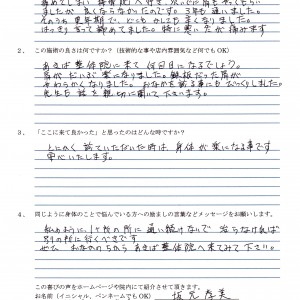 痛めてしまい 整骨院へ行き、次いでに肩もやってもらい
ましたが 良くならなかったのです。3年も通いました。
そのうち 更年期で、心も からだも 悪くなりました。
はっきり言って 諦めてました。特に悪い方が 痛みます
2、この施術の良さは何ですか？（技術的な事や店内雰囲気など何でもOK）
あさば 整体院に来て 何回目になるでしょう。
肩が だいぶ 楽になりました。鉄板だった肩が
やわらかくなりました。おさまる事にもびっくりしました。
先生も 話を 親切に聞いて下さいます。
3、「ここに来て良かった」と思ったのはどんな時ですか？
とにかく 診ていただいた時は 身体が 楽になる事です
安心いたします。
4、同じように身体のことで悩んでいる方への励ましの言葉などメッセージをお願いします。
私のように 1ヶ所の所に 通い続けないで 治らなければ
別の所に行くべきです
ぜひ だめのうちから あさば整体院へ来てみて下さい。
この喜びの声をホームページや院内にて紹介させて頂きます。
お名前（イニシャル、ペンネームでもOK）